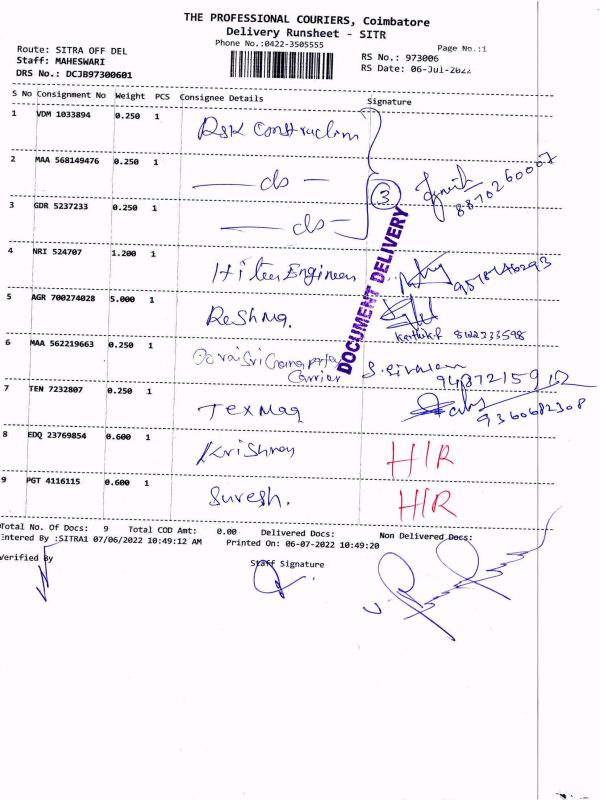 THE PROFESSIONAL COURIERS, Coimbatore
Delivery Runsheet - SITR
Phone No.:0422-3505555
Page No.:1
Route: SITRA OFF DEL
Staff: MAHESWARI
DRS No.: DCJB97300601
RS No.: 973006
RS Date: 06-Jul-2022
S No Consignment No Weight PCS Consignee Details Signature
1 VDM 1033894 0.250 1 Construction
2 MAA 568149476 0.250 1 do 3 8870260007
3 GDR 5237233 0.250 1 do
DOCUMENT DELIVERY
4 NRI 524707 1.200 1 Engineers
5 AGR 700274028 5.000 1 Reshma. 8122333598
6 MAA 562219663 0.250 1 Carrier
7 TEN 7232807 0.250 1 Texmaq 9360682308
8 EDQ 23769854 0.600 1 H/R
9 PGT 4116115 0.600 1 Suresh. H/R
Total No. Of Docs: 9 Total COD Amt: 0.00 Delivered Docs: Non Delivered Docs:
Entered By :SITRA1 07/06/2022 10:49:12 AM Printed On: 06-07-2022 10:49:20
Verified By
Staff Signature